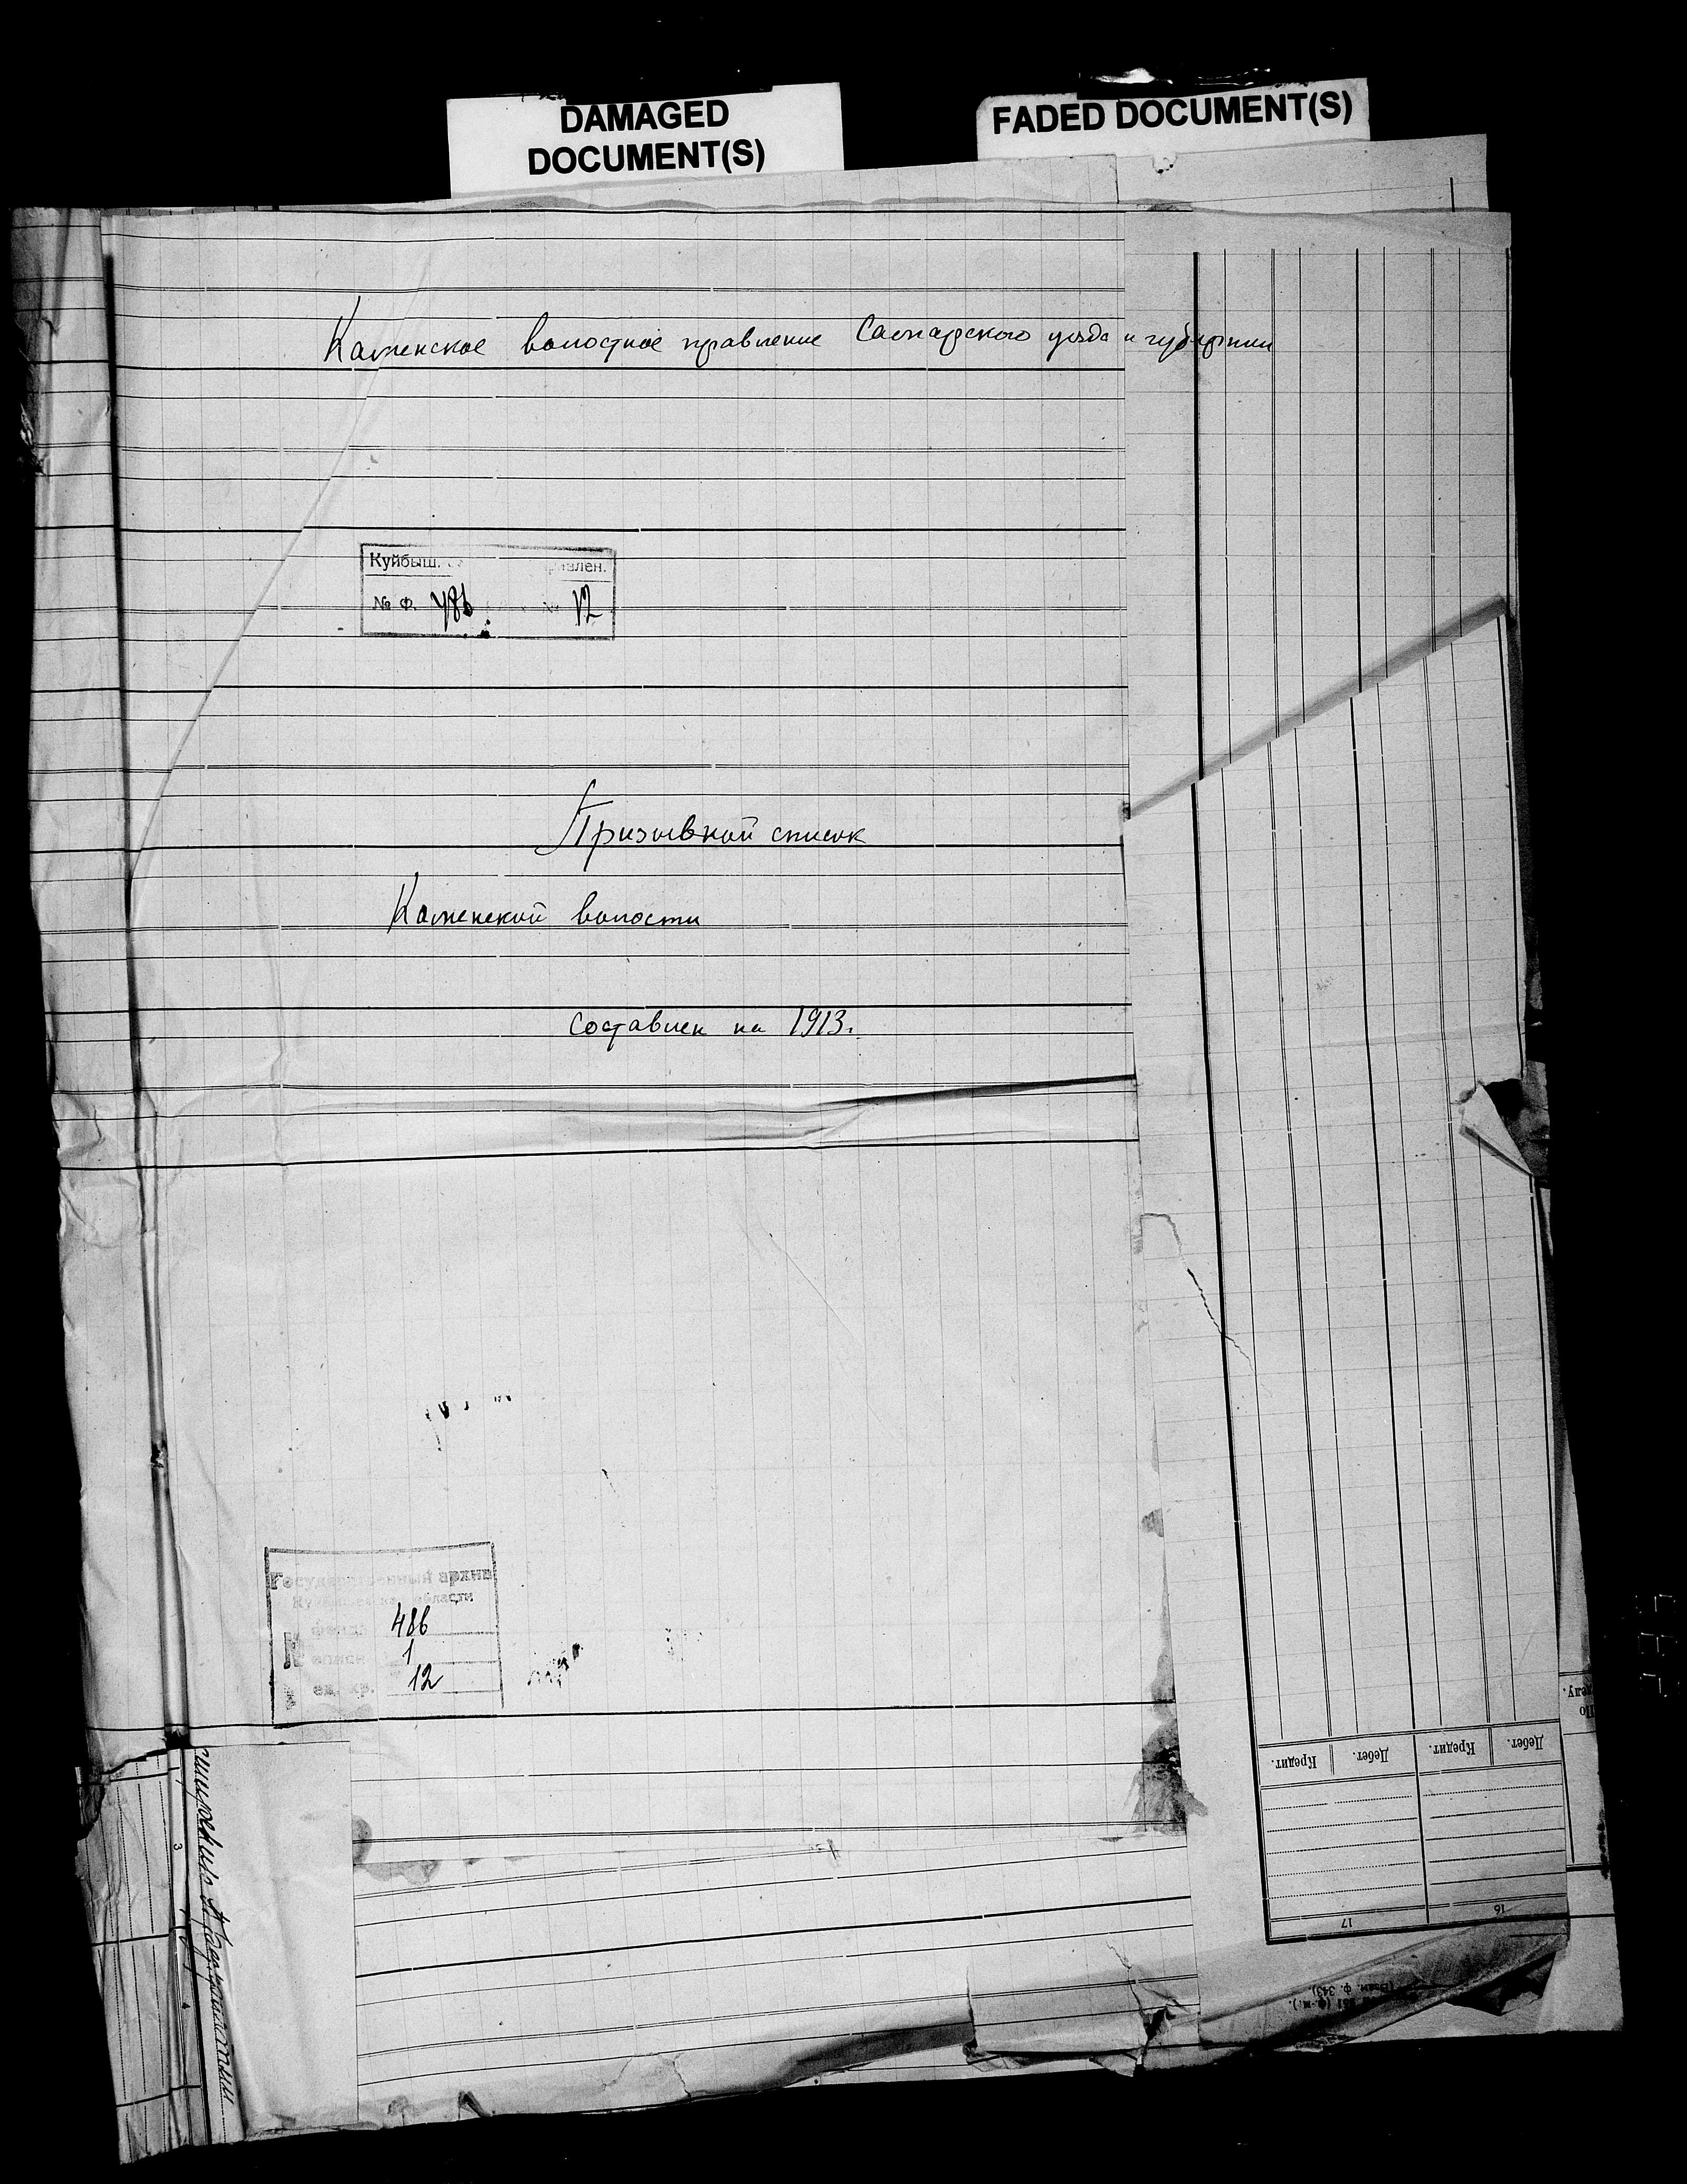 DAMAGED
DOCUMENT(S)
FADED DOCUMENT(S)
Каменское волостное правление Самарского уезда и губернии
Куйбыш. влен.
№ Ф. 486 12
Призывной список
Каменской волости
составлен на 1913.
Государственный архив
области
фонд 486
опись 1
ед. хр. 12
3
По делу.
Кредит. Дебет. Кредит. Дебет.
17 16
(Взам. ф. 343)